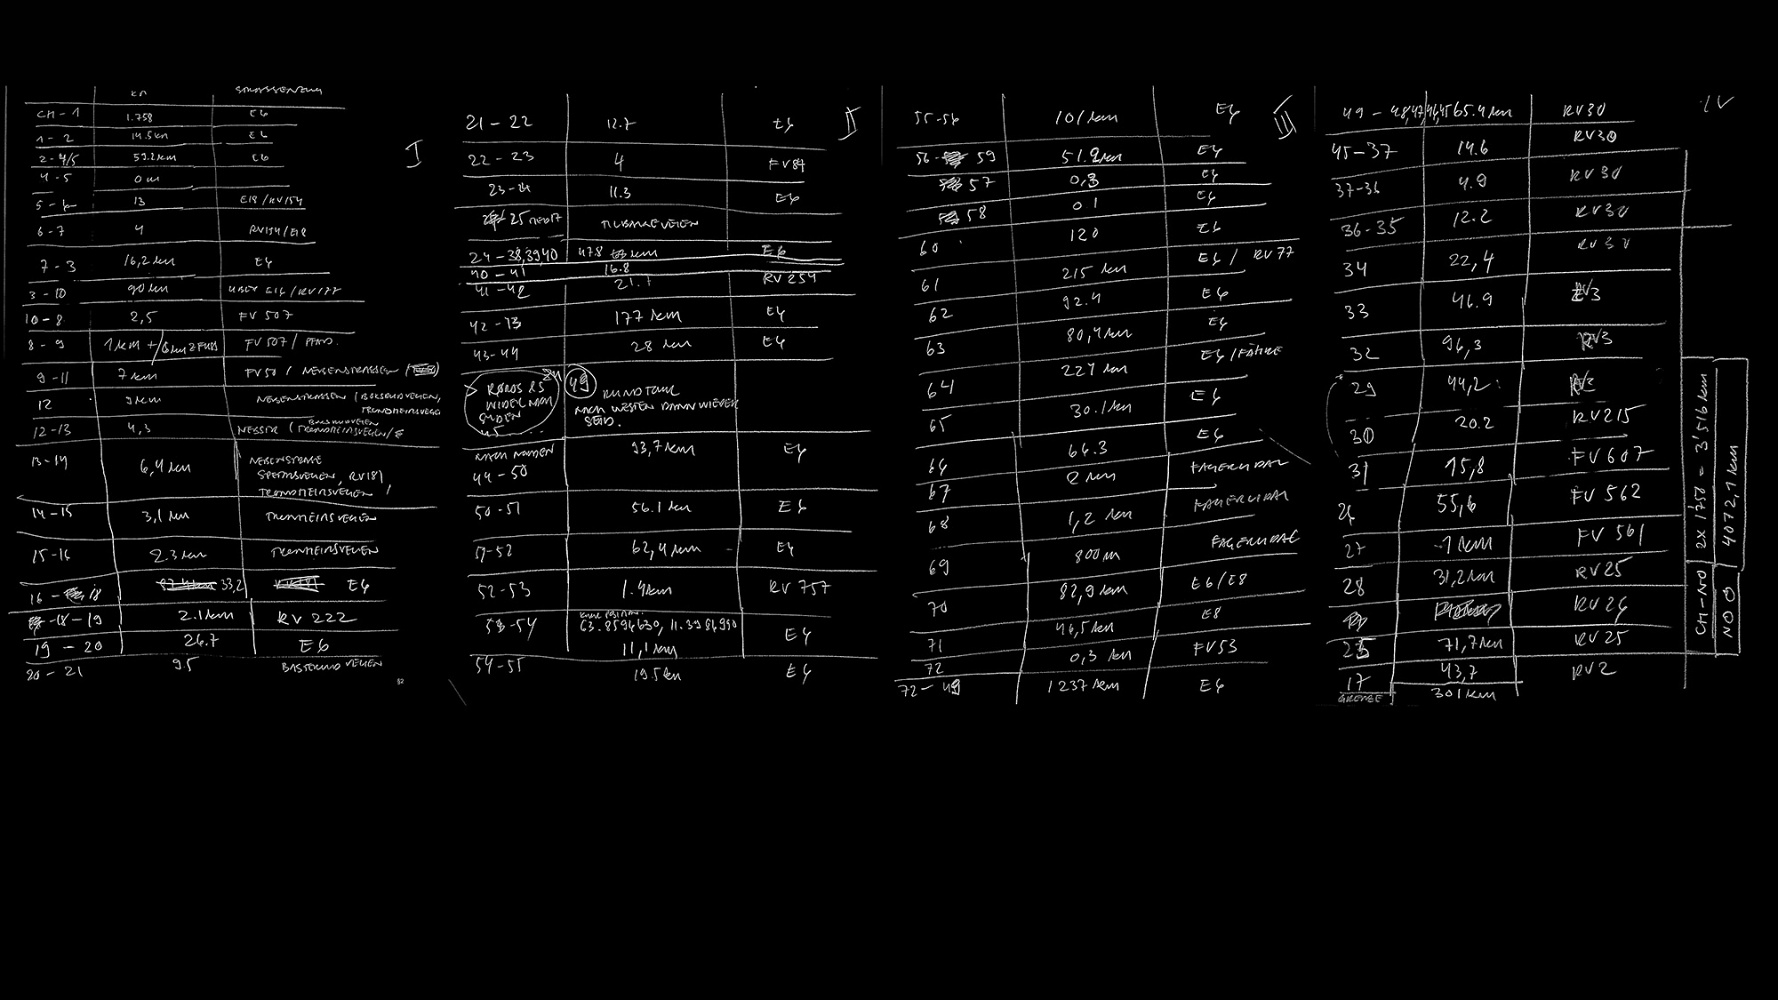 KM STRASSENZUG
CH - 1 1.758 E6
1 - 2 14.5 km E6
2 - 4/5 59.2 km E6
4 - 5 0 m
5 - 6 13 E18/RV154
6 - 7 4 RV154/E18
7 - 3 16,2 km E6
3 - 10 90 km ÜBER E16/RV177
10 - 8 2,5 FV 507
8 - 9 1 km + FV 507 / PFAD.
9 - 11 7 km FV50 / NEBENSTRASSEN
12 9 km NEBENSTRASSEN
12 - 13 4,3
13 - 14 6,4 km RV181
TRONDHEIMSVEIEN /
14 - 15 3,1 km TRONHEIMSVEIEN
15 - 16 2.3 km TRONHEIMSVEIEN
16 - 18 33,2 E6
18 - 19 2.1 km RV 222
19 - 20 26.7 E6
20 - 21 9.5
I
21 - 22 12.7 E6
22 - 23 4 FV84
23 - 24 11.3 E6
25
24 - 38,39,40 47.8 km E6
40 - 41 16.8
41 - 42 21.7 RV 254
42 - 43 177 km E6
43 - 44 28 km E6
> RØROS 25 49 RUNDTOUR
WIDER NACH NACH WESTEN DANN WIEDER
SÜDEN SÜD.
45
NACH NORDEN 93,7 km E6
44 - 50
50 - 51 56.1 km E6
51 - 52 62,4 km E6
52 - 53 1.4 km RV 757
53 - 54 E6
11,1 km
54 - 55 19.5 km E6
II
55 - 56 101 km E6
56 - 59 51.2 km E6
57 0,3 E6
58 0.1 E6
60 120 E6
61 215 km E6 / RV 77
62 92.4 E6
63 80,4 km E6
64 227 km E6/FÄHRE
65 30.1 km E6
66 66.3 E6
67 2 km FAGERLIDAL
68 1,2 km FAGERLIDAL
69 800 m FAGERLIDAL
70 82,9 km E6/E8
71 46,5 km E8
72 0,3 km FV53
72 - 49 1237 km E6
III
49 - 48,47,46,45 65.4 km RV30
45 - 37 14.6 RV30
37 - 36 4.9 RV30
36 - 35 12.2 RV30
34 22,4 RV30
33 46.9 RV3
32 96,3 RV3
29 44,2
30 20.2 RV215
31 15,8 FV 607
26 55,6 FV 562
27 1 km FV 561
28 31,2 km RV25
RV26
25 71,7 km RV25
17 43,7 RV2
GRENZE 301 km
IV
CH-NO 2x 1758 = 3'516 km
NO 4072,1 km